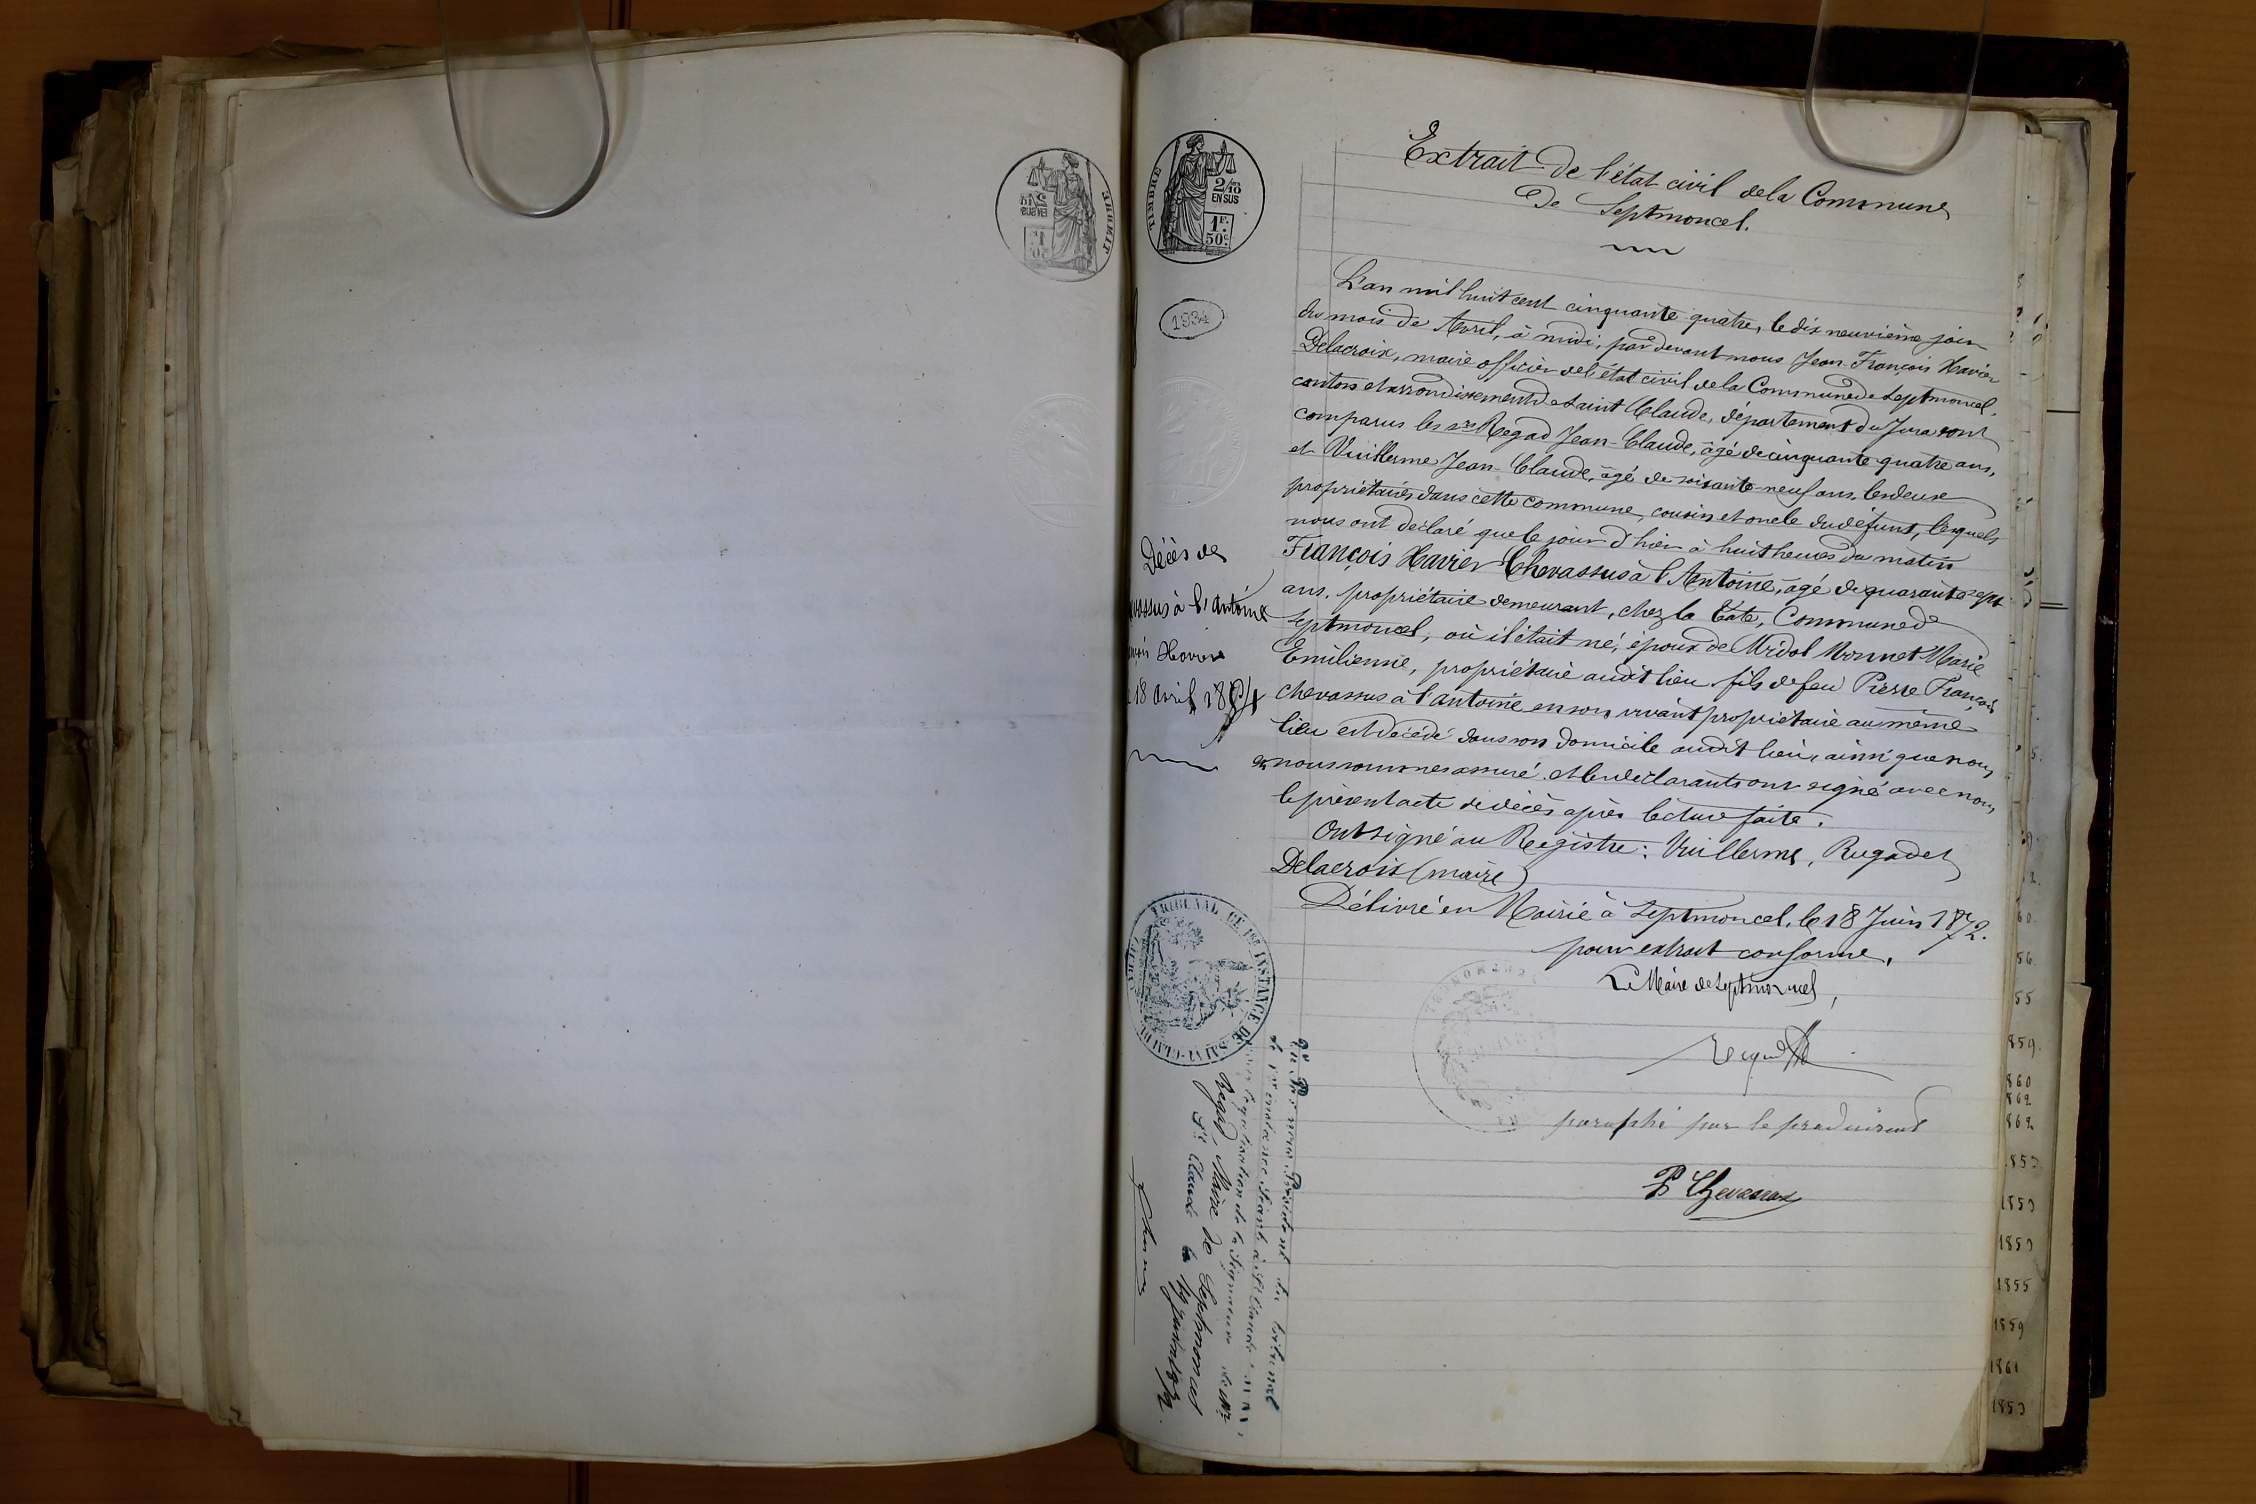 TIMBRE
2/10
EN SUS
1F.
50c
1934
Extrait de l'état civil de la Commune
de Septmoncel.
L'an mil huit cent cinquante quatre, le dix neuvième jour
du mois de Avril, à midi, par devant nous Jean François Xavier
Delacroix, maire officier de l'état civil de la Commune de Septmoncel,
canton et arrondissement de Saint Claude, département du Jura sont
comparus les srs Regad Jean-Claude, âgé de cinquante quatre ans,
et Vuillerme Jean-Claude, âgé de soixante-neuf ans, les deux
propriétaires dans cette commune, cousin et oncle du défunt, lesquels
nous ont déclaré que le jour d'hier à huit heures du matin
François Xavier Chevassus à l'Antoine, âgé de quarante sept
ans, propriétaire demeurant, chez la Tate, Commune de
Septmoncel, où il était né, époux de Midol Monnet Marie
Emilienne, propriétaire audit lieu fils de feu Pierre François
Chevassus à l'antoine en son vivant propriétaire au même
lieu est décédé dans son domicile audit lieu, ainsi que nous
nous sommes assuré. et les déclarants ont signé avec nous
le présent acte de décès après lecture faite.
Ont signé au Registre: Vuillerme, Regad et
Delacroix (maire)
Délivré en Mairie à Septmoncel, le 18 Juin 1872.
pour extrait conforme,
Le Maire de Septmoncel,
paraphé par le produisant
P Chevassus
Décès de
vassus à l'antoine
nçois Xavier
18 avril 1854
TRIBUNAL DE 1ERE INSTANCE DE SAINT-CLAUDE
Vu par nous Président du tribunal
de 1re instance séant à St Claude
légalisation de la signature de Mr
Regad, Maire de Septmoncel
St Claude le 19 juin 1872.
859
860
862
1853
1853
1855
1859
1861
1853